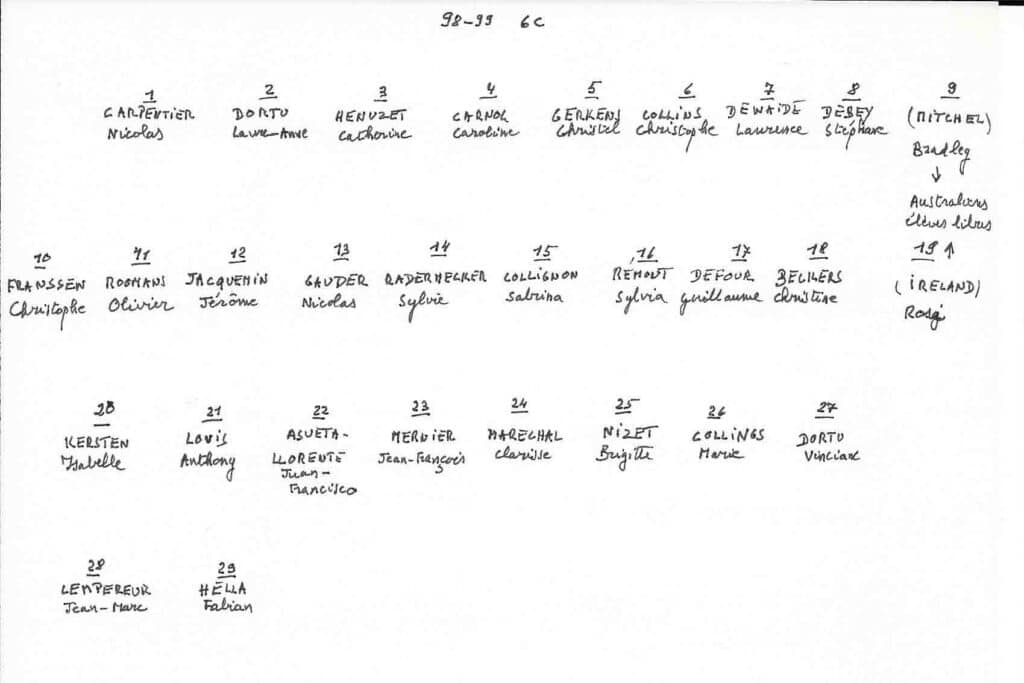 98-99 6C
1 2 3 4 5 6 7 8 9
CARPENTIER DORTU HENUZET CARNOL GERKENS COLLINS DEWAIDE DEBEY (MITCHEL)
Nicolas Laure-Anne Catherine Caroline Christel Christophe Laurence Stéphane Bradley
↓
Australiens
élèves libres
10 11 12 13 14 15 16 17 18 19 ↑
FRANSSEN ROOMANS JACQUEMIN GAUDER RADERMECKER COLLIGNON REMOUT DEFOUR BECKERS (IRELAND)
Christophe Olivier Jérôme Nicolas Sylvie Sabrina Sylvia Guillaume Christine
20 21 22 23 24 25 26 27
KERSTEN LOUIS ASUETA- MERNIER MARECHAL NIZET COLLINGS DORTU
Isabelle Anthony LLORENTE Jean-François Clarisse Brigitte Marie Vinciane
Juan-
Francisco
28 29
LEMPEREUR HELLA
Jean-Marc Fabian